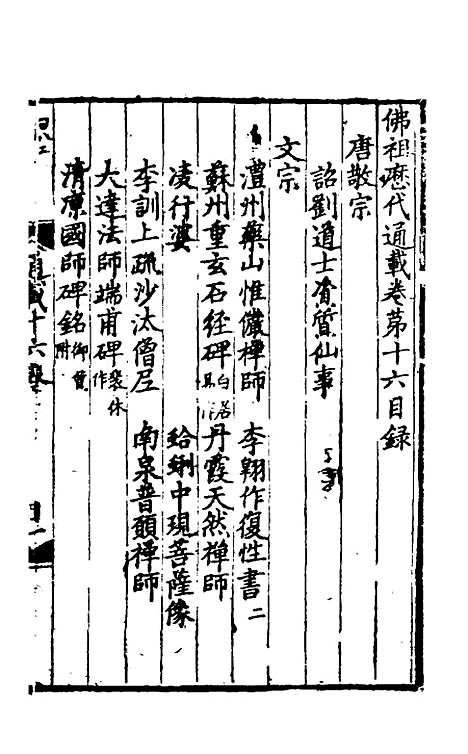 佛祖歷代通載卷第十六目録
唐敬宗
詔劉道士資質仙事
文宗
澧州藥山惟儼禪師　李翔作復性書二
蘇州重玄石經碑白居　丹霞天然禪師
凌行婆　蛤蜊中現菩薩像
李訓上疏沙汰僧尼　南泉普願禪師
大達法師端甫碑裴休作
清凉國師碑銘御贊附
通載十六